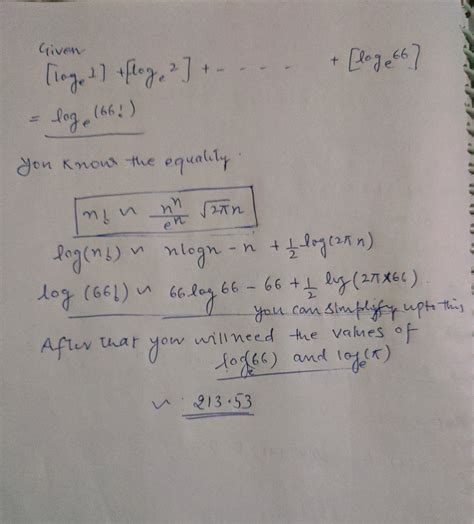 Given
[log_e 1] + [log_e 2] + - - - - - + [log_e 66]
= log_e (66!)
You know the equality.
n! ~ n^n / e^n √2π n
log(n!) ~ n log n - n + 1/2 log(2π n)
log (66!) ~ 66 log 66 - 66 + 1/2 log (2π×66)
you can simplify upto this
After that you will need the values of
log_e(66) and log_e(π)
~ 213.53